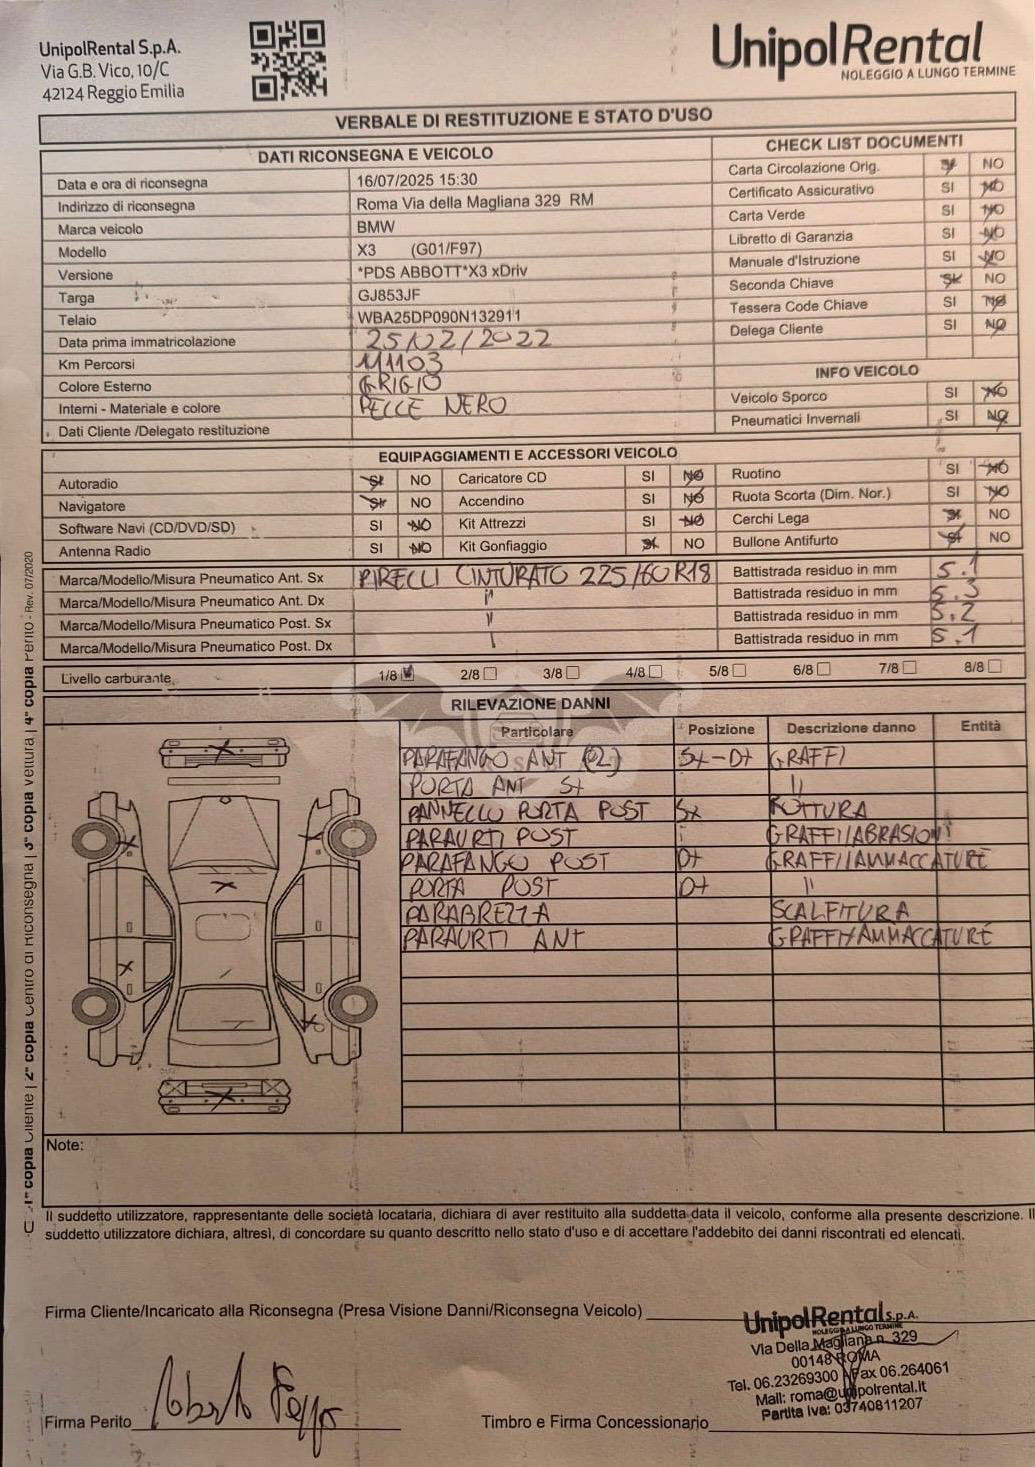 UnipolRental S.p.A.
Via G.B. Vico, 10/C
42124 Reggio Emilia
UnipolRental
NOLEGGIO A LUNGO TERMINE
VERBALE DI RESTITUZIONE E STATO D'USO
DATI RICONSEGNA E VEICOLO
Data e ora di riconsegna 16/07/2025 15:30
Indirizzo di riconsegna Roma Via della Magliana 329 RM
Marca veicolo BMW
Modello X3 (G01/F97)
Versione *PDS ABBOTT*X3 xDriv
Targa GJ853JF
Telaio WBA25DP090N132911
Data prima immatricolazione 25/02/2022
Km Percorsi 111103
Colore Esterno GRIGIO
Interni - Materiale e colore PELLE NERO
Dati Cliente /Delegato restituzione
CHECK LIST DOCUMENTI
Carta Circolazione Orig. SI NO
Certificato Assicurativo SI NO
Carta Verde SI NO
Libretto di Garanzia SI NO
Manuale d'Istruzione SI NO
Seconda Chiave SI NO
Tessera Code Chiave SI NO
Delega Cliente SI NO
INFO VEICOLO
Veicolo Sporco SI NO
Pneumatici Invernali SI NO
EQUIPAGGIAMENTI E ACCESSORI VEICOLO
Autoradio SI NO Caricatore CD SI NO Ruotino SI NO
Navigatore SI NO Accendino SI NO Ruota Scorta (Dim. Nor.) SI NO
Software Navi (CD/DVD/SD) SI NO Kit Attrezzi SI NO Cerchi Lega SI NO
Antenna Radio SI NO Kit Gonfiaggio SI NO Bullone Antifurto SI NO
Marca/Modello/Misura Pneumatico Ant. Sx PIRELLI CINTURATO 225/60 R18 Battistrada residuo in mm 5.1
Marca/Modello/Misura Pneumatico Ant. Dx " Battistrada residuo in mm 5.3
Marca/Modello/Misura Pneumatico Post. Sx " Battistrada residuo in mm 5.2
Marca/Modello/Misura Pneumatico Post. Dx Battistrada residuo in mm 5.1
Livello carburante 1/8 2/8 3/8 4/8 5/8 6/8 7/8 8/8
RILEVAZIONE DANNI
Particolare Posizione Descrizione danno Entità
PARAFANGO ANT (2) Sx-Dx GRAFFI
PORTA ANT Sx "
PANNELLO PORTA POST Sx ROTTURA
PARAURTI POST GRAFFI/ABRASIONI
PARAFANGO POST Dx GRAFFI/AMMACCATURE
PORTA POST Dx "
PARABREZZA SCALFITURA
PARAURTI ANT GRAFFI/AMMACCATURE
Note:
Il suddetto utilizzatore, rappresentante delle società locataria, dichiara di aver restituito alla suddetta data il veicolo, conforme alla presente descrizione. Il
suddetto utilizzatore dichiara, altresì, di concordare su quanto descritto nello stato d'uso e di accettare l'addebito dei danni riscontrati ed elencati.
Firma Cliente/Incaricato alla Riconsegna (Presa Visione Danni/Riconsegna Veicolo)
UnipolRental S.p.A.
NOLEGGIO A LUNGO TERMINE
Via Della Magliana n. 329
00148 ROMA
Tel. 06.23269300 Fax 06.264061
Mail: roma@unipolrental.it
Partita Iva: 03740811207
Firma Perito Roberto
Timbro e Firma Concessionario
1° copia Cliente | 2° copia Centro di Riconsegna | 3° copia Vettura | 4° copia Perito - Rev. 07/2020